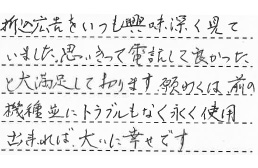 折込広告をいつも興味深く見て
いました。思いきって電話して良かった
と大満足して
おります。願わくは、前の
機種並にトラブルもなく永く使用
出来れば、大いに幸せです